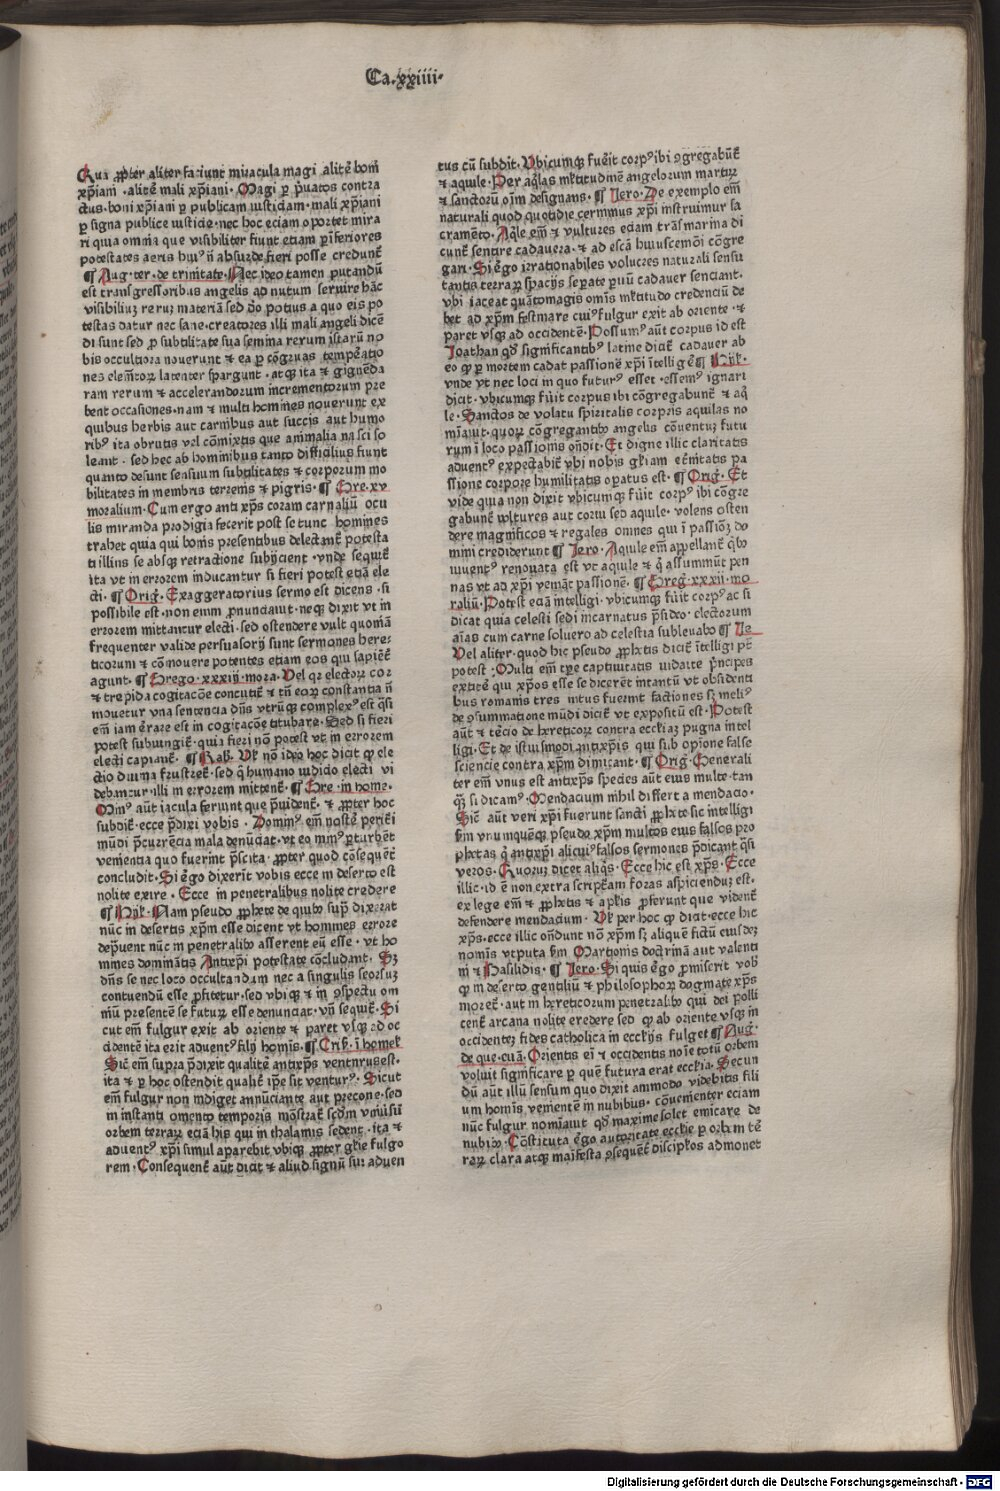 Ca.xxiiii.
Qua ꝓpter aliter faciunt miracula magi alit̄e boni
xp̄iani .alit̄e mali xp̄iani. Magi ꝑ p̄uatos contra
ctus.boni xp̄iani ꝑ publicam iusticiam.mali xp̄iani
ꝑ signa publice iusticie.nec hoc eciam oportet mira
ri quia omnia que visibiliter fiunt etiam ꝑ inferiores
potestates aeris huiꝰ nō absurde fieri posse credunt̄
¶ Aug.ter.de trinitate.Nec ideo tamen putandū
est transgressoribus angelis ad nutum seruire hāc
visibiliuʒ reruʒ materiā sed deo potius a quo eis po
testas datur nec sane.creatores illi mali angeli dicē
di sunt sed ꝓ subtilitate sua semina rerum istarū no
bis occultiora nouerunt ⁊ ea ꝑ cōgruas temꝑatio
nes elemētoꝝ latenter spargunt .atqꝫ ita ⁊ gignēda
ram rerum ⁊ accelerandorum incrementorum pre
bent occasiones.nam ⁊ multi homines nouerunt ex
quibus herbis aut carnibus aut succis aut humo
ribꝰ ita obrutis vel cōmixtis que animalia nasci so
leant . sed hec ab hominibus tanto difficilius fiunt
quanto desunt sensuum subtilitates ⁊ corporum mo
bilitates in membris terrenis ⁊ pigris. ¶ Gre.xv
moralium.Cum ergo antixp̄s coram carnaliū ocu
lis miranda prodigia fecerit post se tunc homines
trahet quia qui bonis presentibus delectant̄ potesta
ti illius se absqꝫ retractione subijcient .vnde sequit̄
ita vt in errorem inducantur si fieri potest etiā ele
cti. ¶ Oriḡ. Exaggeratorius sermo est dicens .si
possibile est.non enim ꝓnunciauit.neqꝫ dixit vt in
errorem mittantur electi.sed ostendere vult quoniā
frequenter valide persuasorij sunt sermones here:
ticorum ⁊ cōmouere potentes etiam eos qui sapient̄
agunt. ¶ Grego.xxxiij.mora.Vel qꝛ electoꝝ cor
⁊ trepida cogitacōe concutit̄ ⁊ tn̄ eoꝝ constantia nō
mouetur vna sentencia dn̄s vtrūqꝫ complexꝰ est q̄si
em̄ iam errare est in cogitacōe titubare.Sed si fieri
potest subiungit̄.quia fieri nō potest vt in errorem
electi capiant̄. ¶ Rab. Vl̄ nō ideo hoc dicit ꝙ ele
ctio diuina frustret̄.sed q̄ humano iudicio electi vi
debantur.illi in errorem mittent̄.¶ Gre.in home.
Minꝰ aūt iacula feriunt que p̄uident̄. ⁊ ꝓpter hoc
subdit̄.ecce p̄dixi vobis . Dominꝰ em̄ nostē periētē
mūdi p̄currēcia mala denūciat.vt eo minꝰ ꝑturbent
venientia quo fuerint p̄scita .ꝓpter quod cōsequēt̄
concludit.Si ergo dixerit vobis ecce in deserto est
nolite exire . Ecce in penetralibus nolite credere
¶ Hyl.Nam pseudo ꝓphete de quibꝰ supͣ dixerat
nūc in desertis xp̄m esse dicent vt homines errore
dep̄uent nūc in penetralibꝰ asserent eū esse .vt ho
mines dominātis Antixp̄i potestate cōcludant. Sꝫ
dn̄s se nec loco occultandum nec a singulis seorsuʒ
contuendū esse ꝓfitetur.sed vbiqꝫ ⁊ in ꝯspectu om
niū presentē se futuꝝ esse denunciat.vn̄ sequit̄.Si
cut em̄ fulgur exit ab oriente ⁊ paret vsqꝫ ad oc
cidentē ita erit aduentꝰ filij homīs.¶ Criß.ī homel̄
Sic̄ em̄ supra p̄dixit qualit̄e antixp̄s venturus est.
ita ⁊ ꝑ hoc ostendit qualit̄ ip̄e sit venturꝰ. Sicut
em̄ fulgur non indiget annūciante aut precone.sed
in instanti omento temporis mōstrat̄ scd̄m vniūsū
orbem terraꝝ eciā his qui in thalamis sedent .ita ⁊
aduentꝰ xp̄i simul aparebit vbiqꝫ ꝓpter glie fulgo
rem.Consequent̄ aūt dicit ⁊ aliud signū sui aduen
tus cū subdit.Vbicumqꝫ fuēit corpꝰ ibi ꝯgregabūt̄
⁊ aquile.Per aq̄las ml̄titudinē angelorum martirꝝ
⁊ sanctorū oīm designans. ¶ Iero.De exemplo em̄
naturali quod quotidie cernimus xp̄i instruimur sa
cramēto. Aq̄le em̄ ⁊ vultures etiam trās marina di
cunt̄ sentire cadauera.⁊ ad escā huiuscemōi cōgre
gari.Si ēgo irrationabiles volucres naturali sensu
tantis terraꝝ spacijs seperate paruū cadauer senciant.
vbi iaceat quāto magis omīs ml̄titudo credenciū de
bet ad xp̄m festinare cuiꝰ fulgur exit ab oriente .⁊
paret vsqꝫ ad occidentē.Possumꝰ aūt corpus id est
Ioathan qd̄ significantibꝰ latine dicit̄ cadauer ab
eo ꝙ ꝑ mortem cadat passionē xp̄i ītelligē ¶ Hyl.
vnde vt nec loci in quo futurꝰ esset .essemꝰ ignari
dicit .vbicumqꝫ fūit corpus ibi cōgregabunt̄ ⁊ aq̄
le.Sanctos de volatu spiritalis corporis aquilas no
mīauit.quoꝝ cōgregantibꝰ angelis cōuentuʒ futu
rum ī loco passionis oñdit.Et digne illic claritatis
aduentꝰ expectabit̄ vbi nobis gl̄iam et̄nitatis pa
ssione corpore humilitatis oꝑatus est.¶ Oriḡ. Et
vide quia non dixit vbicumqꝫ fūit corpꝰ ibi cōgre
gabunt̄ vultures aut corui sed aquile.volens osten
dere magnificos ⁊ regales omnes qui ī passionē do
mini crediderunt ¶ Iero.Aquile em̄ appellant̄ qͥbꝰ
iuuentꝰ renouata est vt aquile ⁊ q̄ assummūt pen
nas vt ad xp̄i veniāt passionē. ¶ Greḡ.xxxij.mo
raliū.Potest eciā intelligi.vbicumqꝫ fūit corpꝰ ac si
dicat quia celesti sedi incarnatus p̄sideo.electorum
aīas cum carne soluero ad celestia subleuabo ¶ Ie
Vel aliter.quod hic pseudo ꝓphetis dicit̄ ītelligi pt̄
potest .Multi em̄ tꝑe captiuitatis iudaice p̄ncipes
extite qui xp̄os esse se dicerēt intantū vt obsidenti
bus romanis tres intus fuerint factiones sꝫ meliꝰ
de ꝯsummatione mūdi dicit̄ vt expositū est.Potest
aūt ⁊ tēcio de hereticoꝝ contra eccl̄iaʒ pugna intel
ligi.Et de istiusmodi antixp̄is qui sub opione false
sciencie contra xp̄m dimicant. ¶ Oriḡ.Generali
ter em̄ vnus est antixp̄s species aūt eius multe.tan
qͣꝫ si dicamꝰ .Mendacium nihil differt a mendacio.
Sic̄ aūt veri xp̄i fuerunt sancti ꝓphete sic intelligi
ẜm vnumquēqꝫ pseudo xp̄m multos eius falsos pro
phetas q̄ antixp̄i alicuiꝰ falsos sermones p̄dicant q̄si
veros.Quoruʒ dicet aliq̄s. Ecce hic est xp̄s. Ecce
illic.id ē non extra scripturam foras aspiciendum est.
ex lege em̄ ⁊ ꝓphetis ⁊ apl̄is ꝓferunt que vident̄
defendere mendacium. Vl̄ per hoc ꝙ dicit.ecce hic
xp̄s.ecce illic oñdunt nō xp̄m sꝫ aliquē fictū eiusdeʒ
nomīs vtputa ẜm Martionis doctrinā aut valenti
ni ⁊ Basilidis. ¶ Iero.Si quis ēgo ꝓmiserit vobꝰ
ꝙ in deserto gentiliū ⁊ philosophoꝝ dogmate xp̄s
moret̄.aut in hereticorum penetralibꝰ qui dei polli
cent̄ arcana nolite credere sed ꝙ ab oriente vsqꝫ in
occidenteʒ fides catholica in eccl̄ijs fulget ¶ Aug.
de que.euā.Orientis em̄ ⁊ occidentis noīe totū orbem
voluit significare ꝑ quē futura erat eccl̄ia. Secun
dū aūt illū sensum quo dixit ammodo videbitis fili
um hominis venientē in nubibus. cōuenienter eciam
nūc fulgur nominauit qd̄ maxime solet emicare de
nubibꝰ. Cōstituta ēgo autoritate ecclie ꝑ orbem tē
raꝝ clara atqꝫ manifesta ꝯsequēt̄ discipl̄os admonet